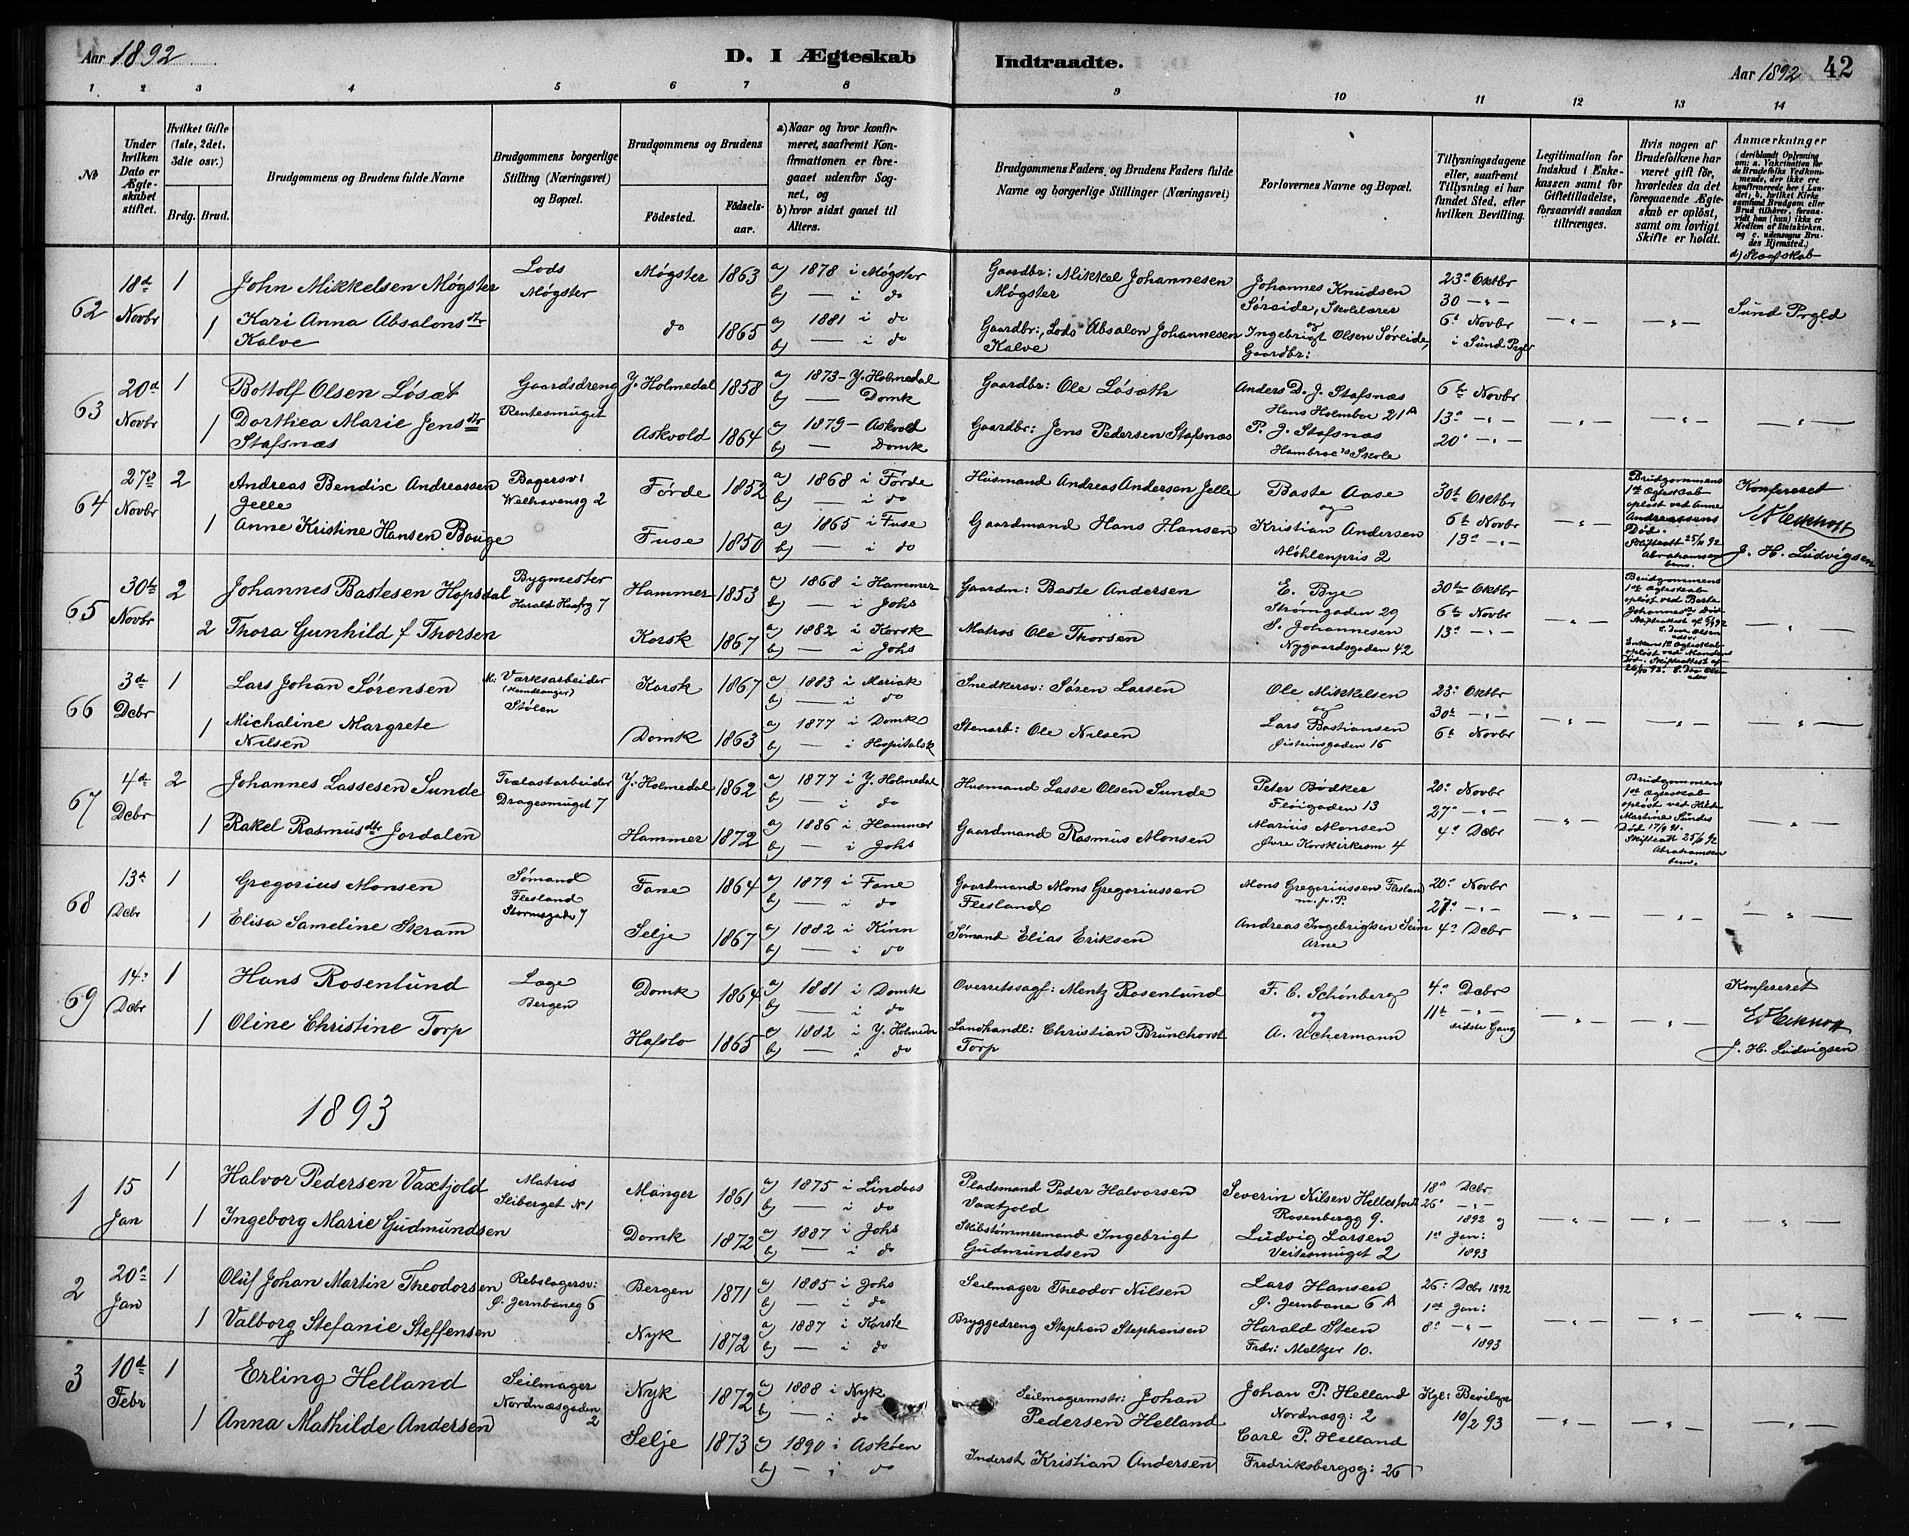 Aar 1892
D. I Ægteskab
Indtraadte.
Aar 1892
42
1 2 3 4 5 6 7 8 9 10 11 12 13 14
No
Under hvilken Dato er Ægteskabet stiftet.
Hvilket Gifte (1ste, 2det, 3die osv.)
Brdg. Brud.
Brudgommens og Brudens fulde Navne
Brudgommens borgerlige Stilling (Næringsvei) og Bopæl.
Brudgommens og Brudens
Fødested.
Fødselsaar.
a) Naar og hvor konfirmeret, saafremt Konfirmationen er foregaaet udenfor Sognet, og
b) hvor sidst gaaet til Alters.
Brudgommens Faders, og Brudens Faders fulde Navne og borgerlige Stillinger (Næringsvei)
Forlovernes Navne og Bopæl.
Tillysningsdagene eller, saafremt Tillysning ei har fundet Sted, efter hvilken Bevilling.
Legitimation for Indskud i Enkekassen samt for Giftetilladelse, forsaavidt saadan tiltrænges.
Hvis nogen af Brudefolkene har været gift før, hvorledes da det foregaaende Ægteskab er opløst, samt om lovligt Skifte er holdt.
Anmærkninger
(deriblandt Oplysning om: a. Vakcination for de Brudefolks Vedkommende, der ikke ere konfirmerede her i Landet; b. hvilket Kirkesamfund Brudgom eller Brud tilhører, forsaavidt han (hun) ikke er Medlem af Statskirken. og c. udensogns Brudes Hjemsted.)
d) Slægtskab
62 18d Novbr 1 John Mikkelsen Møgster Lods Møgster Møgster 1863 a) 1878 i Møgster b) — i do Gaardbr: Mikkel Johannesen Møgster Johannes Knudsen Søreide, Skolelærer 23de Oktbr 30 -"- Sund Prgld
1 Kari Anna Absalonsdtr Kalve do 1865 a) 1881 i do b) — i do Gaardbr:, Lods Absalon Johannesen Kalve og Ingebrigt Olsen Søreide, Gaardbr: 6t Novbr i Sund Prgld
63 20d Novbr 1 Bottolf Olsen Løsæt Gaardsdreng Rentesmuget Y. Holmedal 1858 a) 1873 – Y. Holmedal b) — Domk Gaardbr: Ole Løsæth Anders D. J. Stafsnæs Hans Holmboe 21 A 6te Novbr 13de -"-
1 Dorthea Marie Jensdtr Stafsnæs Askvold 1864 a) 1879 – Askvold b) — Domk Gaardbr: Jens Pedersen Stafsnæs P. J. Stafsnæs Hambroe's Skole 20de -"-
64 27d Novbr 2 Andreas Bendix Andreassen Jelle Bagersv: Welhavensg 2 Førde 1852 a) 1868 i Førde b) — i do Husmand Andreas Andersen Jelle Baste Aase og 30te Oktbr
Brudgommens 1st Ægteskab opløst ved Anne Andreassens Død. Skifteatt 25/11 92 Abrahamsen
Konfereret J. H. Ludvigsen
1 Anne Kristine Hansen Bouge Fuse 1850 a) 1865 i Fuse b) — i do Gaardmand Hans Hansen Kristian Andersen Møhlenpris 2 6te Novbr 13de -"-
65 30te Novbr 2 Johannes Bastesen Hopsdal Bygmester Harald Haarfg 7 Hammer 1853 a) 1868 i Hammer b) — i Johs Gaardm: Baste Andersen E. Bye Strømgaden 29 30te Oktbr 6te Novbr
Brudgommens 1st Ægteskab opløst ved Berte Johannesdtr Død
2 Thora Gunhild f Thorsen Korsk 1867 a) 1882 i Korsk b) — i Johs Matros Ole Thorsen S. Johannesen Nygaardsgaden 42 13de -"-
66 3de Dcbr 1 Lars Johan Sørensen M: Værksarbeider Stølen Korsk 1867 a) 1883 i Mariak b) — do Snedkersv: Søren Larsen Ole Mikkelsen og 23de Oktbr 30te -"-
1 Michaline Margrete Nilsen Domk 1863 a) 1877 i Domk b) — i Hospitalsk Stenarb: Ole Nilsen Lars Bastiansen Øisteinsgaden 16 6te Novbr
67 4de Dcbr 2 Johannes Lassesen Sunde Trælastarbeider Dragesmuget 7 Y. Holmedal 1862 a) 1877 i Y. Holmedal b) — i do Husmand Lasse Olsen Sunde Peter Bødker Fløigaden 13 20de Novbr 27de -"-
Brudgommens 1st Ægteskab opløst ved Martine Sundes Død 17/9 91. Skifteatt 25/11 92 Abrahamsen
1 Rakel Rasmusdtr Jordalen Hammer 1872 a) 1886 i Hammer b) — i Johs Gaardmand Rasmus Monsen Marius Monsen Øvre Korskirkealm 4 4de Dcbr
68 13de Dcbr 1 Gregorius Monsen Sømand Flesland Stormsgade 7 Fane 1864 a) 1879 i Fane b) — i do Gaardmand Mons Gregoriussen Flesland Mons Gregoriussen Flesland m.p.P. 20de Novbr 27de -"-
1 Elisa Sameline Skram Selje 1867 a) 1882 i Kinn b) — i do Sømand Elias Eriksen Andreas Ingebrigtsen Seim Arne 4de Dcbr
69 14de Dcbr 1 Hans Rosenlund Læge Bergen Domk 1864 a) 1881 i Domk b) — i do Overretssagf: Mentz Rosenlund F. C. Schønberg og 4de Dcbr 11te -"- Konfereret
1 Oline Christine Torp Hafslo 1865 a) 1882 i Y. Holmedal b) — i do Landhandl: Christian Brunchorst Torp A. Uchermann sidste Gang J. H. Ludvigsen
1893
1 15 Jan 1 Halvor Pedersen Vaxtjold Matros Sliberget No 1 Manger 1861 a) 1875 i Lindaas b) — i do Pladsmand Peder Halvorsen Vaxtjold Severin Nilsen Hellesfvedt Rosenbergg 9. 18de Dcbr 26de -"- 1892 og
1 Ingeborg Marie Gudmundsen Domk 1872 a) 1887 i Johs b) — i do Skibstømmermand Ingebrigt Gudmundsen Ludvig Larsen Veitesmuget 2 1st Jan: 1893
2 20de Jan 1 Oluf Johan Martin Theodorsen Rebslagersv: Ø. Jernbaneg 6 Bergen 1871 a) 1885 i Johs b) — i do Seilmager Theodor Nilsen Lars Hansen Ø. Jernbane 6 A 26de Dcbr 1892 1st Jan:
1 Valborg Stefanie Steffensen Nyk 1872 a) 1887 i Korsk b) — i do Bryggedreng Stephan Stephansen Harald Steen Fredr: Meltzer 10. 8de -"- 1893
3 10de Febr 1 Erling Helland Seilmager Nordnæsgaden 2 Nyk 1872 a) 1888 i Nyk b) — i do Seilmagermstr: Johan Pedersen Helland Johan P. Helland Nordnæsg: 2 Kgl: Bevilge 10/2 93
1 Anna Mathilde Andersen Selje 1873 a) 1890 i Askøen b) — i do Inderst Kristian Andersen Carl P. Helland Fredriksbergsg: 26